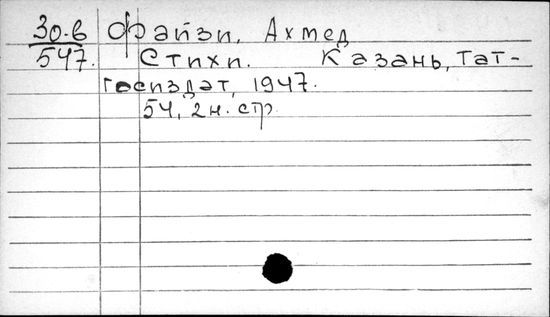 30-6 Файзи, Ахмед
547. Стихи. Казань, Тат-
госиздат, 1947.
54, 2 н. стр.